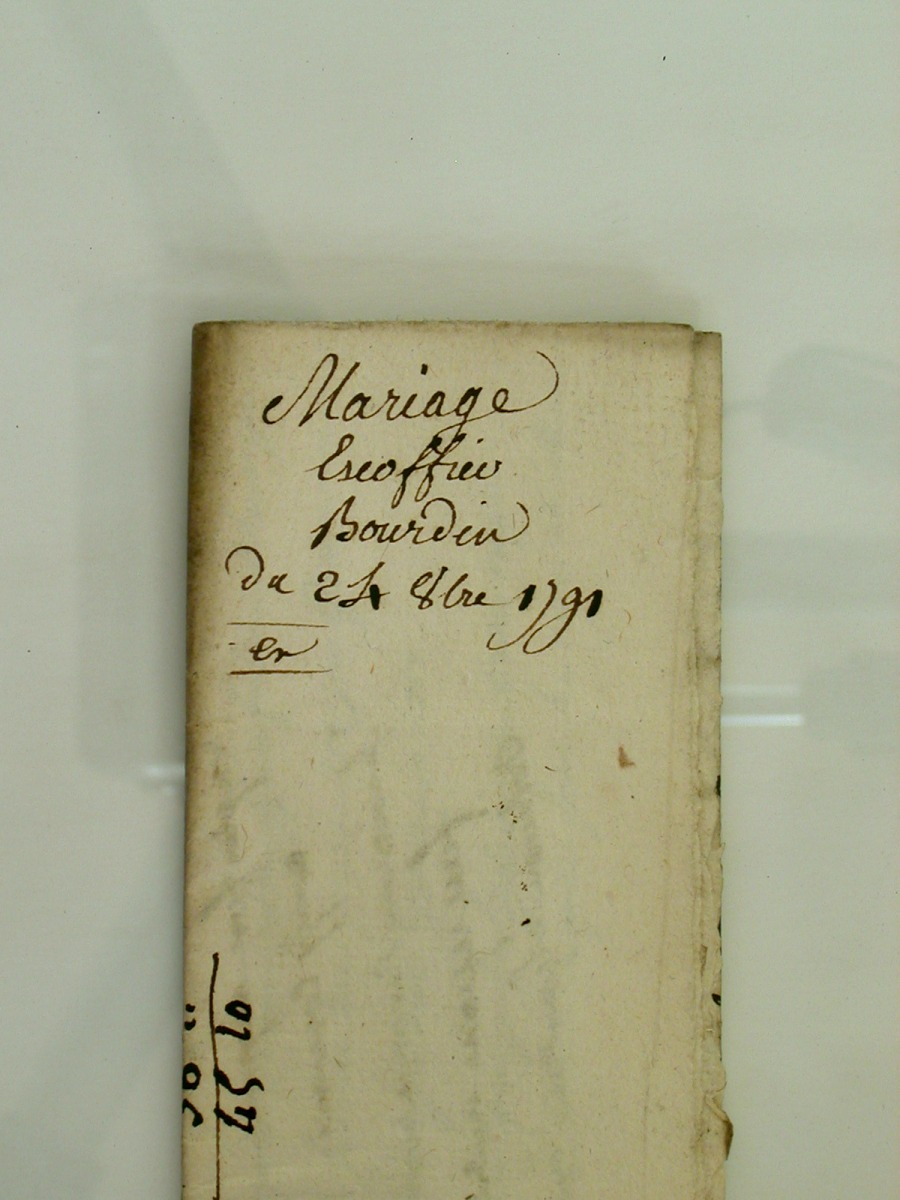 Mariage
Escoffier
Bourdin
du 24 8bre 1791
en
45 10